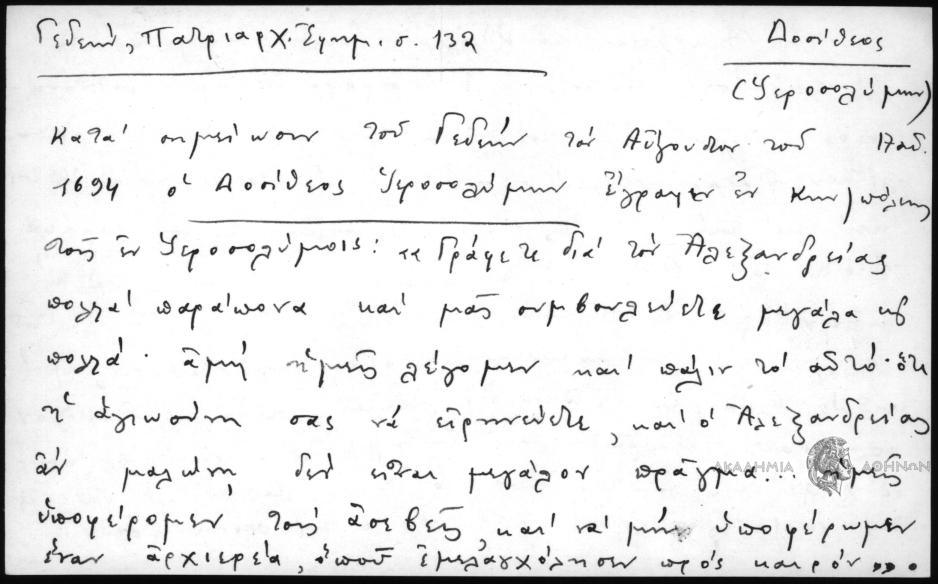 Γεδεών, Πατριαρχ. Ἐφημ. σ. 132
Δοσίθεος
(Ἱεροσολύμων)
Κατὰ σημείωσιν τοῦ Γεδεὼν τὸν Αὔγουστον τοῦ
1694 ὁ Δοσίθεος Ἱεροσολύμων ἔγραφεν ἐν Κων)πόλει
τοῖς ἐν Ἱεροσολύμοις: «Γράφετε διὰ τὸν Ἀλεξανδρείας
πολλὰ παράπονα καὶ μᾶς συμβουλεύετε μεγάλα κ
πολλά· ἀμὴ ἡμεῖς λέγομεν καὶ πάλιν τὸ αὐτό· ὅτι
ἡ ἁγιωσύνη σας νὰ εἰρηνεύετε, καὶ ὁ Ἀλεξανδρείας
ἂν μαλώνῃ, δὲν εἶναι μεγάλον πρᾶγμα... ἡμεῖς
ὑποφέρομεν τοὺς ἀσεβεῖς, καὶ νὰ μὴν ὑποφέρωμεν
ἕναν ἀρχιερέα, ὁποῦ ἐμελαγχόλησεν πρὸς καιρόν»».
ΑΚΑΔΗΜΙΑ ΑΘΗΝΩΝ